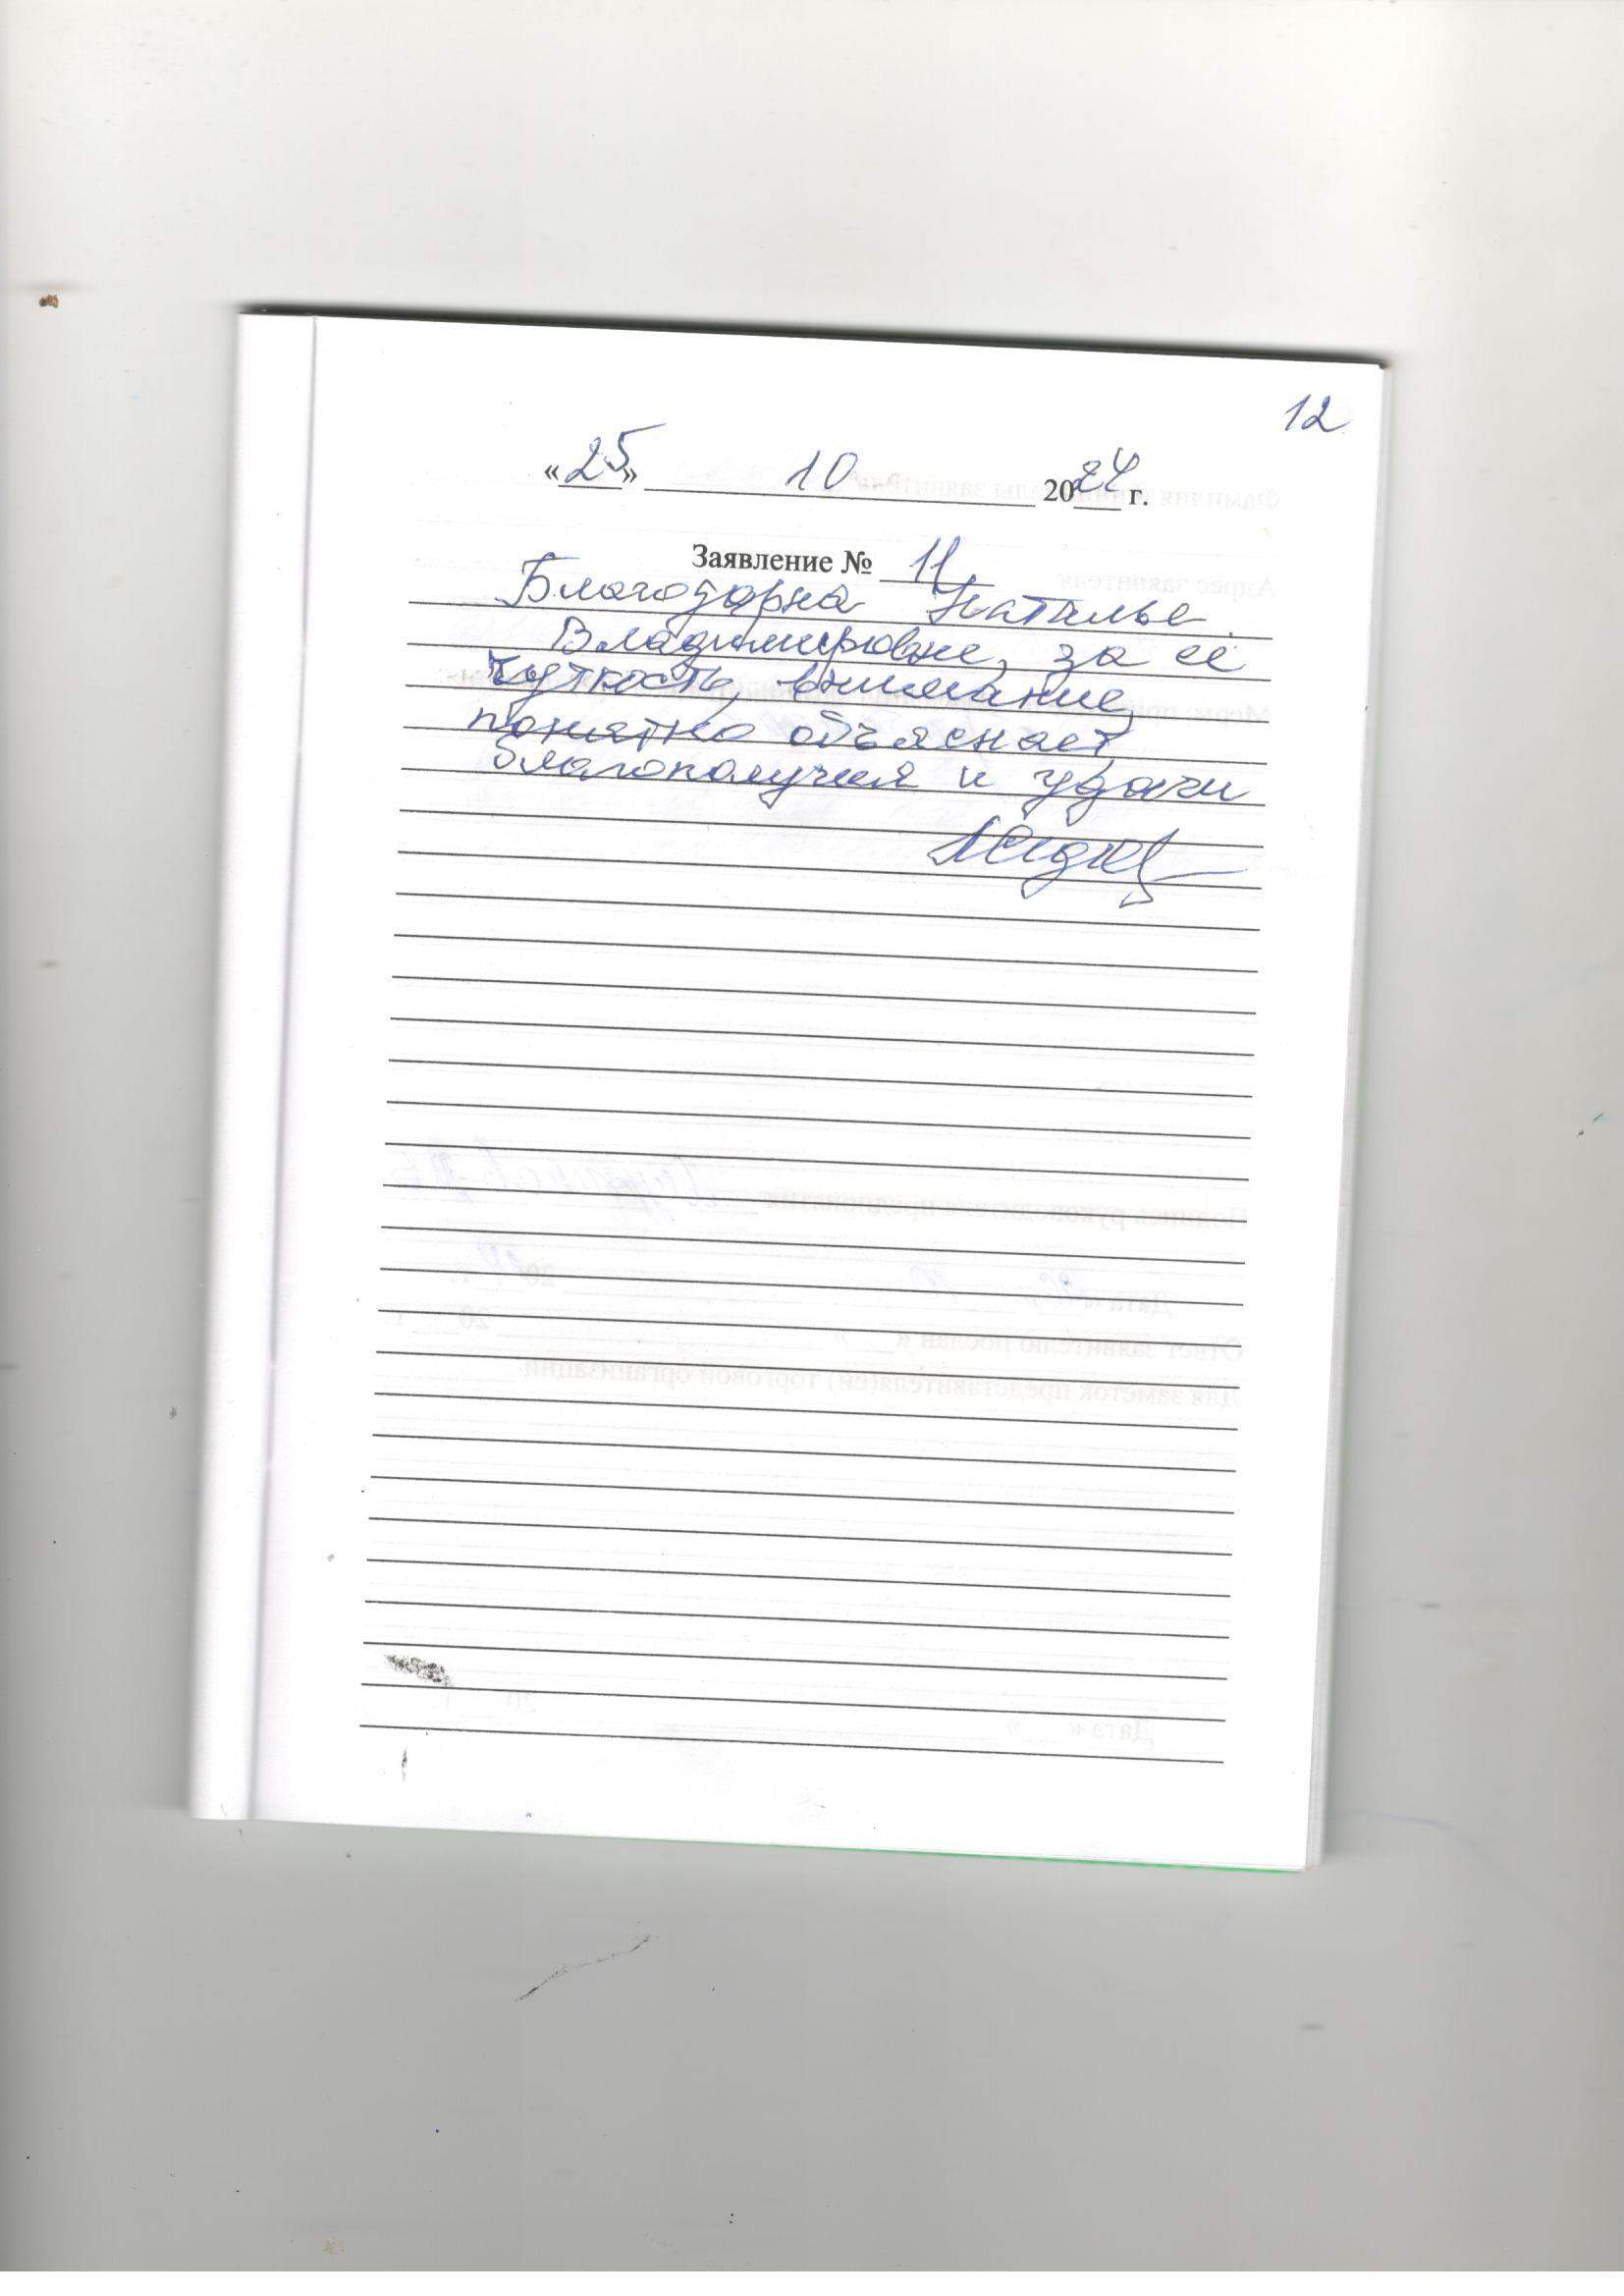 12
«25» 10 2024 г.
Заявление № 11
Благодарна Наталье
Владимировне, за её
чуткость, внимание,
понятно объясняет,
благополучия и удачи